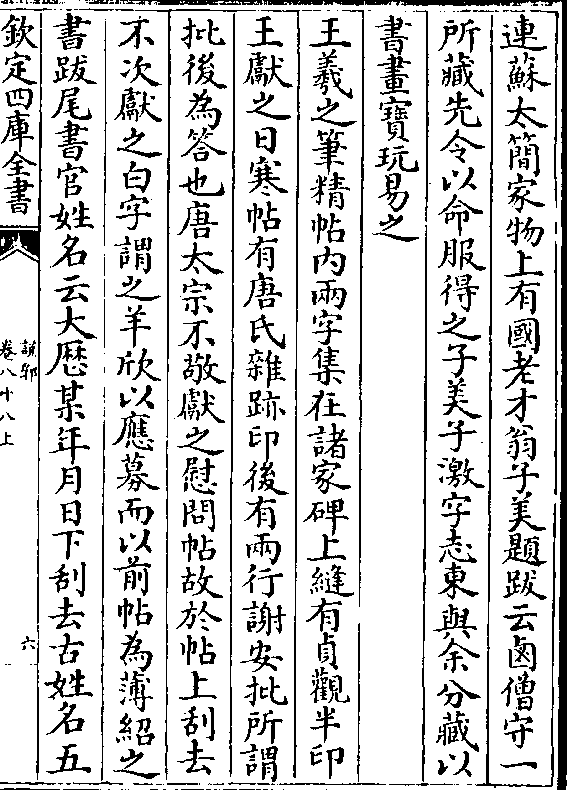 連蘇太簡家物上有國老才翁子美題跋云鹵僧守一
所藏先令以命服得之子美子激字志東與余分藏以
書畫寶玩易之
王羲之筆精帖内兩字集在諸家碑上縫有貞觀半印
王獻之日寒帖有唐氏雜跡印後有兩行謝安批所謂
批後為答也唐太宗不敬獻之慰問帖故於帖上刮去
不次獻之白字謂之羊欣以應募而以前帖為薄紹之
書跋尾書官姓名云大厯某年月日下刮去古姓名五
欽定四庫全書
說郛
卷八十八上
六